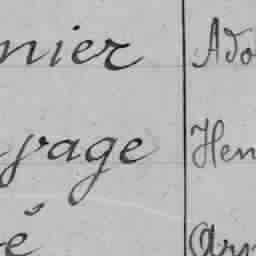 nier Ado
yage Hen
é Arm